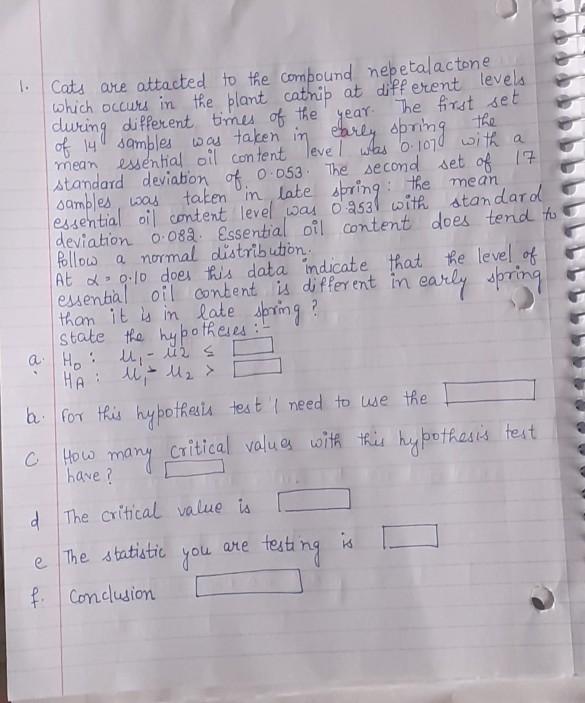 1. Cats are attacted to the compound nepetalactone
which occurs in the plant catnip at different levels
during different times of the year. The first set
of 14 samples was taken in early spring the
mean essential oil content level was 0.107 with a
standard deviation of 0.053. The second set of 17
samples was taken in late spring: the mean
essential oil content level was 0.253 with standard
deviation 0.082. Essential oil content does tend to
follow a normal distribution.
At α = 0.10 does this data indicate that the level of
essential oil content is different in early spring
than it is in late spring?
state the hypotheses:-
a. H₀: μ₁ - μ2 ≤
HA: μ₁ - μ₂ >
b. For this hypothesis test I need to use the
C How many critical values with this hypothesis test
have?
d The critical value is
e The statistic you are testing is
f. Conclusion